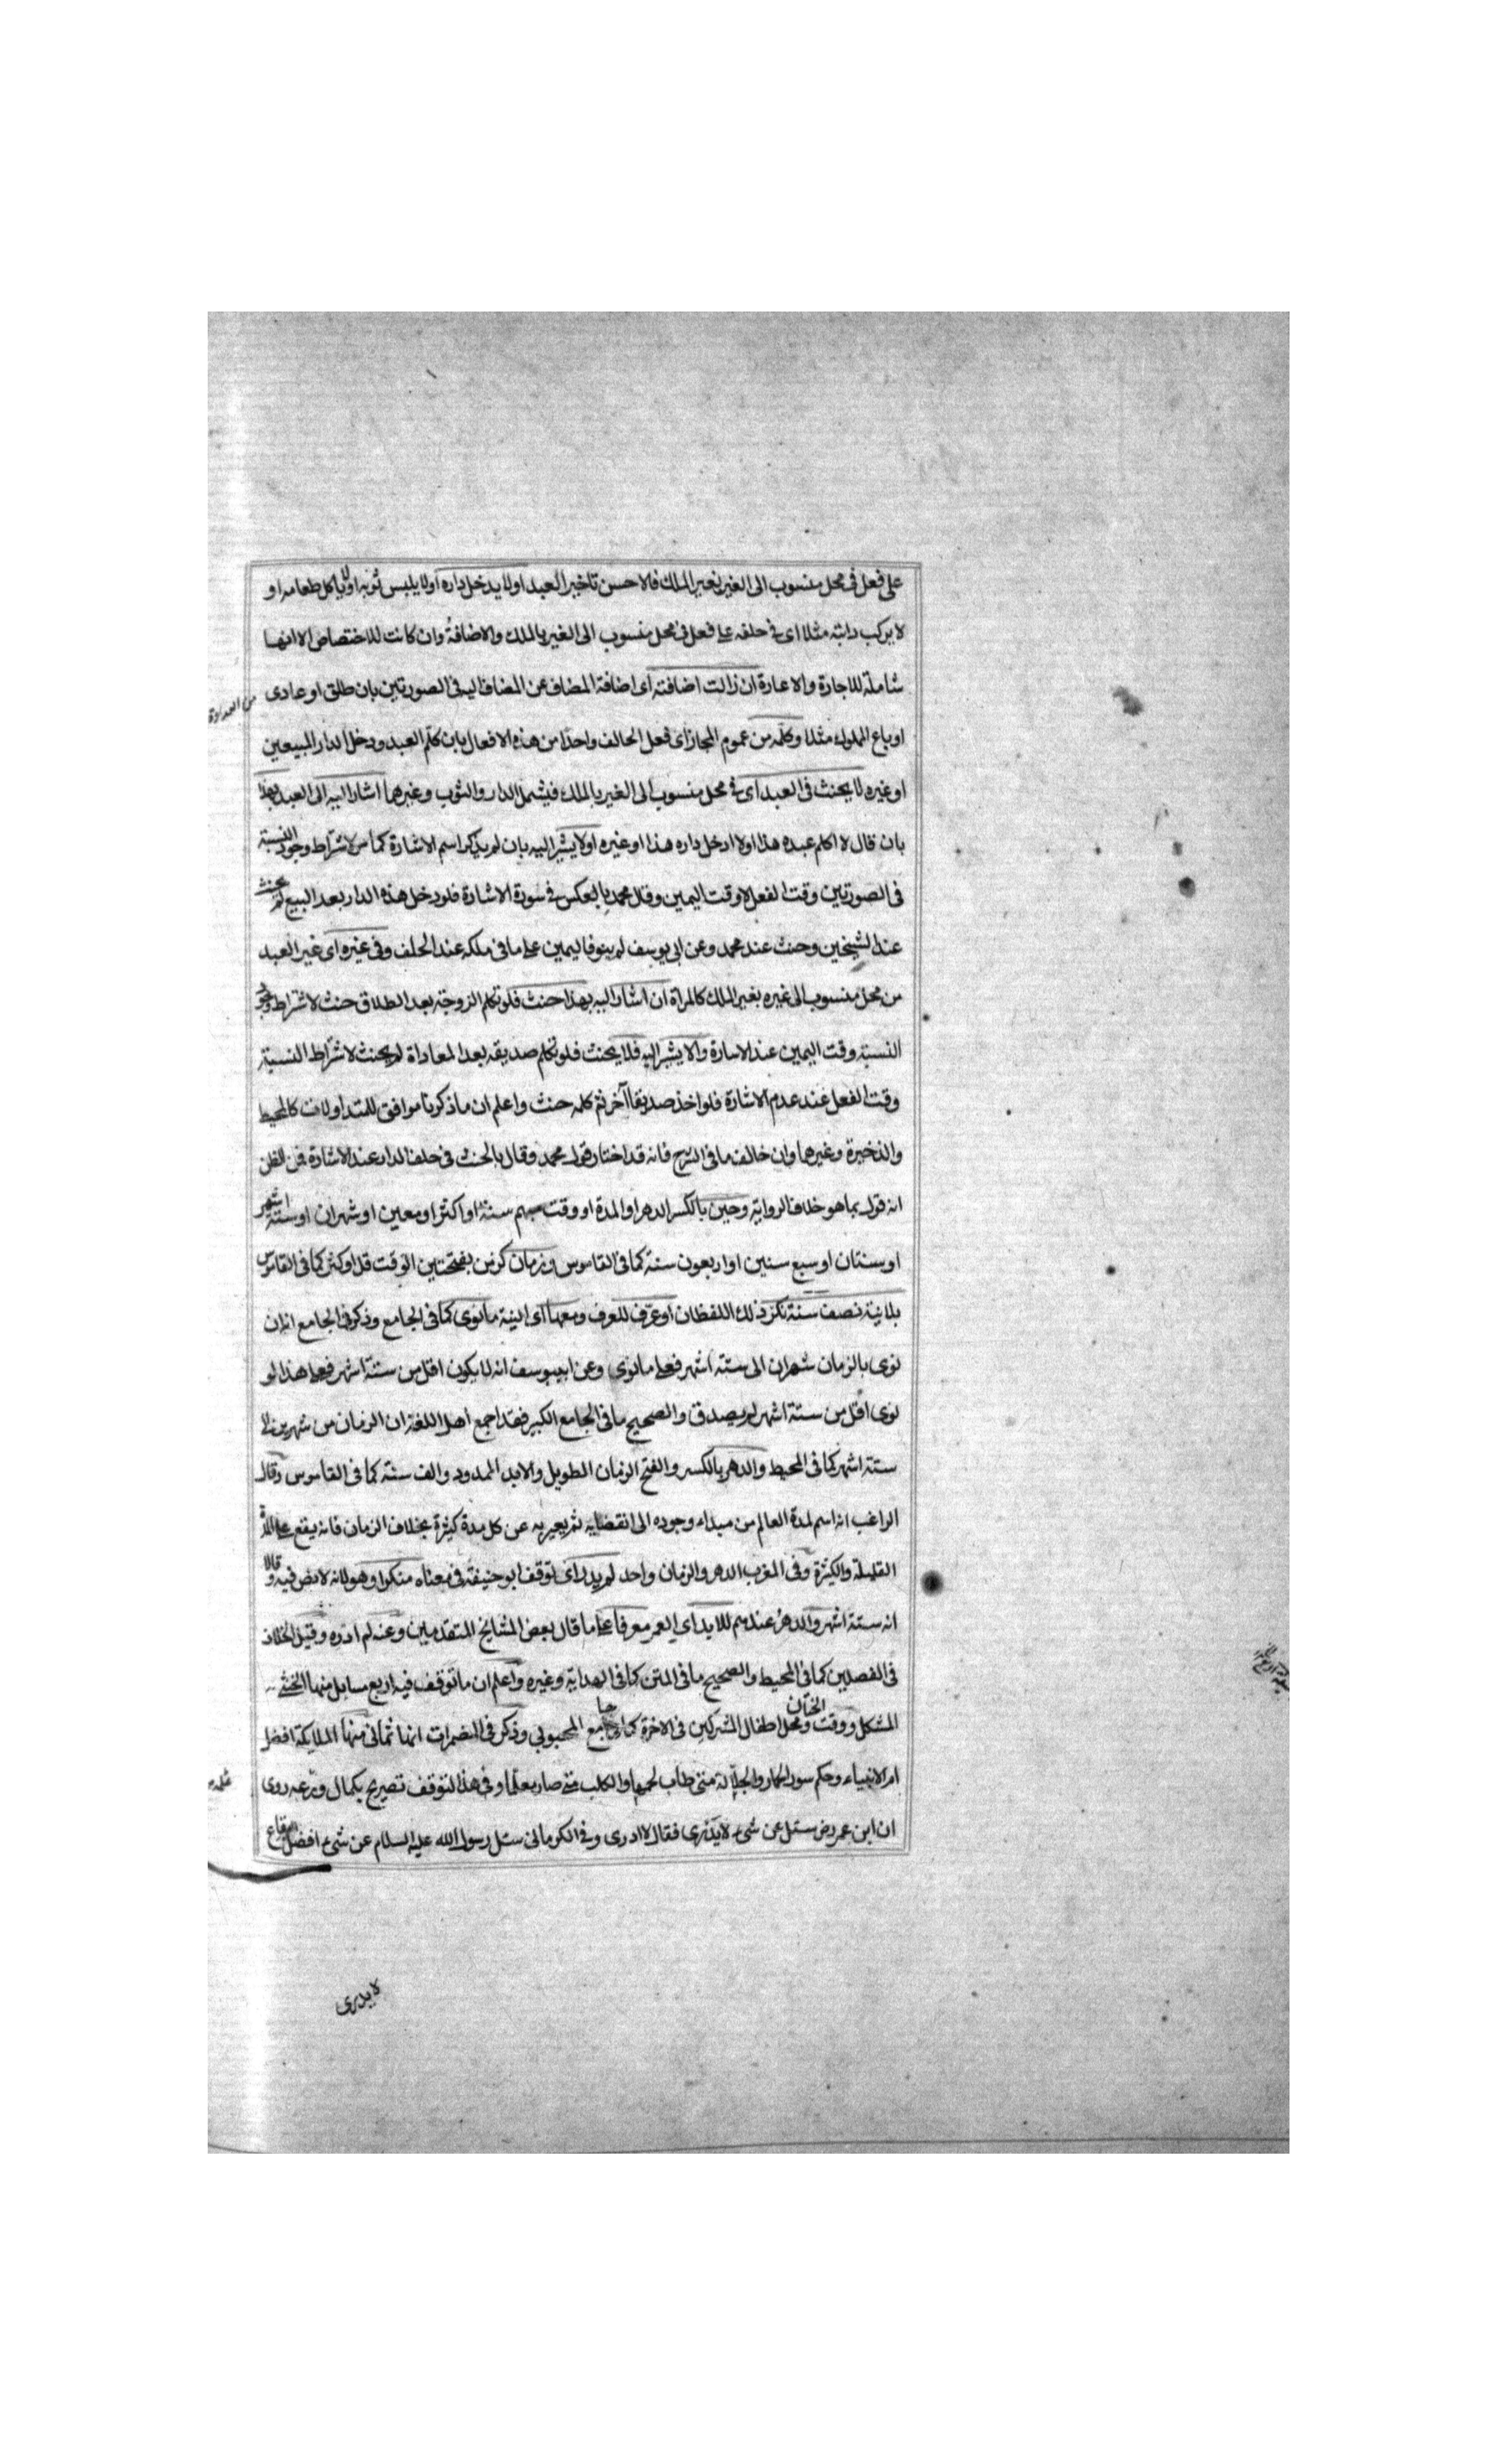 على فعل فى محل منسوب الى الغير بغير الملك فالاحسن تاخير العبد اولا يدخل داره اولا يلبس ثوبه اولا ياكل طعامه او
لا يركب دابته مثلا اى فى حلفه على فعل فى محل منسوب الى الغير بالملك والاضافة وان كانت للاختصاص الا انها
شاملة للاجارة والاعارة ان زالت اضافته اى اضافة المضاف عن المضاف اليه فى الصورتين بان طلق او عادى
من العداوة
او باع المملوك مثلا وكلمه من عموم المجاز اى فعل الحالف واحدا من هذه الافعال بان كلم العبد ودخل الدار المبيعين
او غيره لا يحنث فى العبد اى فى محل منسوب الى الغير بالملك فيشمل الدار والثوب وغيرهما اشار اليه الى العبد بهذا
بان قال لا اكلم عبده هذا اولا ادخل داره هذا او غيره اولا يشير اليه بان لم يذكر اسم الاشارة كما مر لاشتراط وجود النسبة
فى الصورتين وقت الفعل لا وقت اليمين وقال محمد بالعكس فى سورة الاشارة فلو دخل هذه الدار بعد البيع لم يحنث
عند الشيخين وحنث عند محمد وعن ابى يوسف لم ينو فاليمين على ما فى ملكه عند الحلف وفى غيره اى غير العبد
من محل منسوب الى غيره بغير الملك كالمراة ان اشار اليه بهذا حنث فلو تكلم الزوجة بعد الطلاق حنث لاشتراط وجود
النسبة وقت اليمين عند الاسارة والا يشير اليه فلا يحنث فلو تكلم صديقه بعد المعاداة لم يحنث لاشتراط النسبة
وقت الفعل عند عدم الاشارة فلو اخذ صديقا آخر ثم كلمه حنث واعلم ان ما ذكرنا موافق للمتداولات كالمحيط
والذخيرة وغيرها وان خالف ما فى الشرح فانه قد اختار قول محمد وقال بالحنث فى حلف الدار عند الاشارة فمن الظن
انه قول بما هو خلاف الرواية وحين بالكسر الدهر او المدة او وقت مبهم سنة او اكثر او معين او شهران او ستة اشهر
او سنتان او سبع سنين او اربعون سنة كما فى القاموس وزمان كزمن بفتحتين الوقت قل او كثر كما فى القاموس
بلا نية نصف سنة نكر ذلك اللفظان او عرف للعرف ومعها اى النية ما نوى كما فى الجامع وذكر فى الجامع انه ان
نوى بالزمان شهران الى ستة اشهر فعلى ما نوى وعن ابيوسف انه لا يكون اقل من ستة اشهر فعلى هذا لو
نوى اقل من ستة اشهر لم يصدق والصحيح ما فى الجامع الكبير فقد اجمع اهل اللغة ان الزمان من شهرين الى
ستة اشهر كما فى المحيط والدهر بالكسر والفتح الزمان الطويل والابد الممدود والف سنة كما فى القاموس وقال
الراغب انه اسم لمدة العالم من مبداء وجوده الى انقضايه ثم يعبر به عن كل مدة كثيرة بخلاف الزمان فانه يقع على المدة
القليلة والكثيرة وفى المغرب الدهر والزمان واحد لم يدر اى توقف ابو حنيفة فى معناه منكرا وهو لانه لا نص فيه وقالا
انه ستة اشهر والدهر عندهم للابد اى العمر معرفا على ما قال بعض المشايخ المتقدمين وعنه لم ادره وقيل الخلاف
فى الفصلين كما فى المحيط والصحيح ما فى المتن كما فى الهداية وغيره واعلم ان ما توقف فيه اربع مسايل منها الخنثى
المشكل ووقت الختان ومحل اطفال المشركين فى الاخرة كما فى جامع المحبوبي وذكر فى المضمرات انها ثمانى منها الملايكة افضل
ام الانبياء وحكم سور الحمار والجلالة متى طاب لحمها والكلب متى صار معلما وفى هذا التوقف تصريح بكمال ورعه روى
ان ابن عمر رض سئل عن شىء لا يدرى فقال لا ادرى وفى الكرمانى سئل رسول الله عليه السلام عن شىء افضل البقاع
لا يدرى